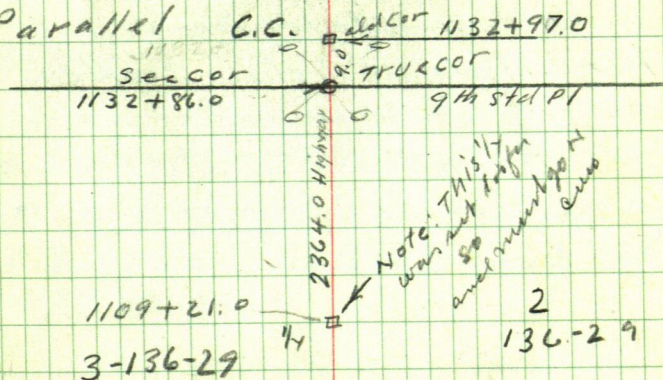 Parallel C.C. old Cor 1132+97.0
9.0
Sec Cor True Cor
1132+86.0 9th Std Pl
2364.0 Highway
Note: This 1/4
was set too far
so
and must go N
1109+21.0
1/4
3-136-29
2
136-29